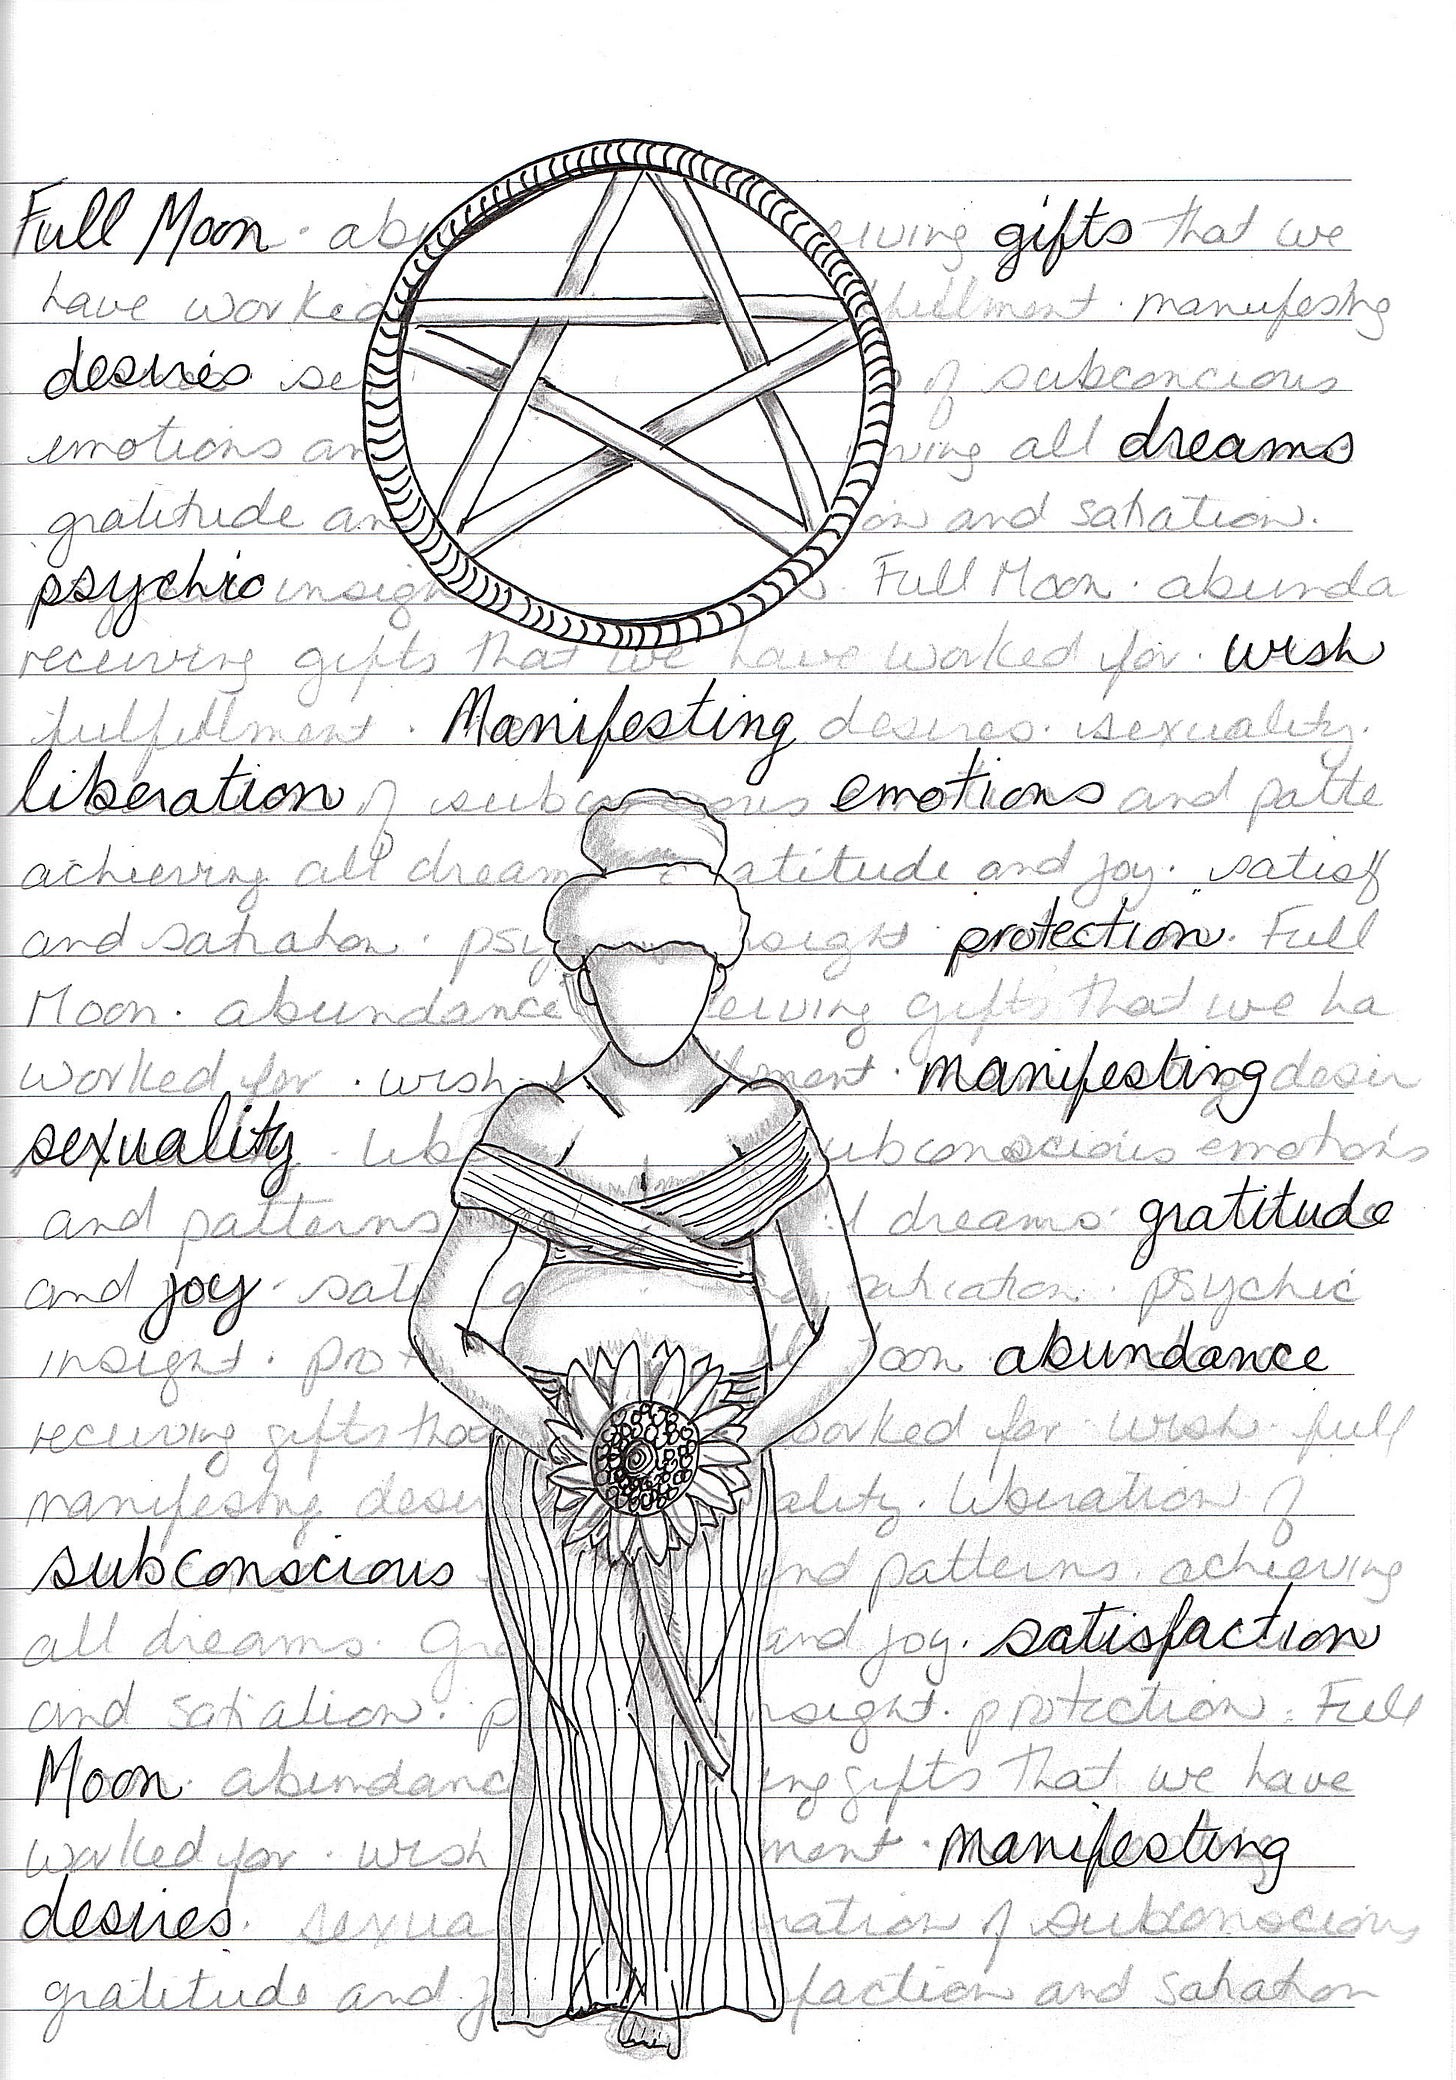 Full Moon · abu eiving gifts that we
have worked fillment · manifesting
desires se of subconcious
emotions an ving all dreams
gratitude an on and satiation.
psychic insigh Full Moon · abunda
receiving gifts that we have worked for · wish
fulfillment · Manifesting desires · sexuality.
liberation of subconscious emotions and patte
achieving all dream atitude and joy · satisf
and satiation · psy nsight · protection · Full
Moon · abundance eiving gifts that we ha
worked for · wish lment · manifesting desir
sexuality · lib ubconscious emotions
and patterns l dreams · gratitude
and joy · sati satiation · psychic
insight · prot oon abundance
receiving gifts tha worked for · wish full
manifesting desir ality · liberation of
subconscious nd patterns. achieving
all dreams · Gra and joy. satisfaction
and satiation · p nsight · protection · Full
Moon · abundanc ing gifts that we have
worked for · wish ment · manifesting
desires. sexua ration of subconscious
gratitude and j faction and satiation